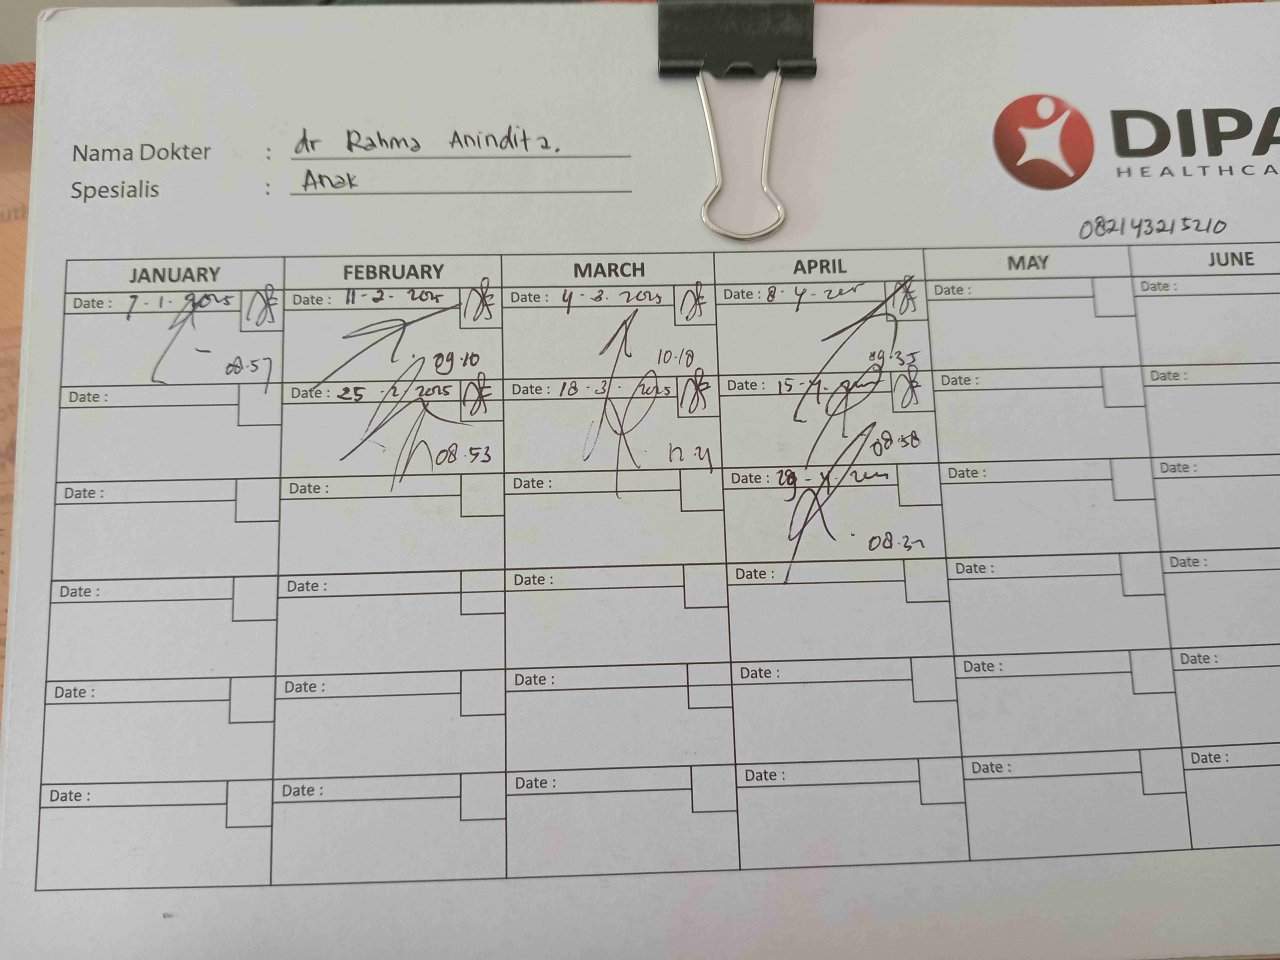 Nama Dokter : dr Rahma Anindita.
Spesialis : Anak
DIPA
HEALTHCA
082143215210
JANUARY FEBRUARY MARCH APRIL MAY JUNE
Date : 7-1-2025 Date : 11-2-2025 Date : 4-3-2025 Date : 8-4- Date : Date :
08.57 09.10 10.18 09.35
Date : Date : 25-2-2025 Date : 18-3-2025 Date : 15-4- Date : Date :
08.53 08.58
Date : Date : Date : Date : 29-4- Date : Date :
Date : Date : Date : Date : Date : Date :
Date : Date : Date : Date : Date : Date :
Date : Date : Date : Date : Date : Date :